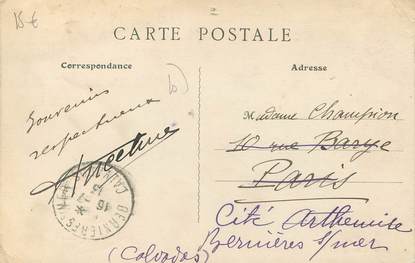 15€
CARTE POSTALE
Correspondance
Adresse
Souvenirs
respectueux
Madame Champion
10 rue Barye
Paris
Cité Arthemise
Bernières s/mer
(Calvados)
BERNIÈRES-S-MER